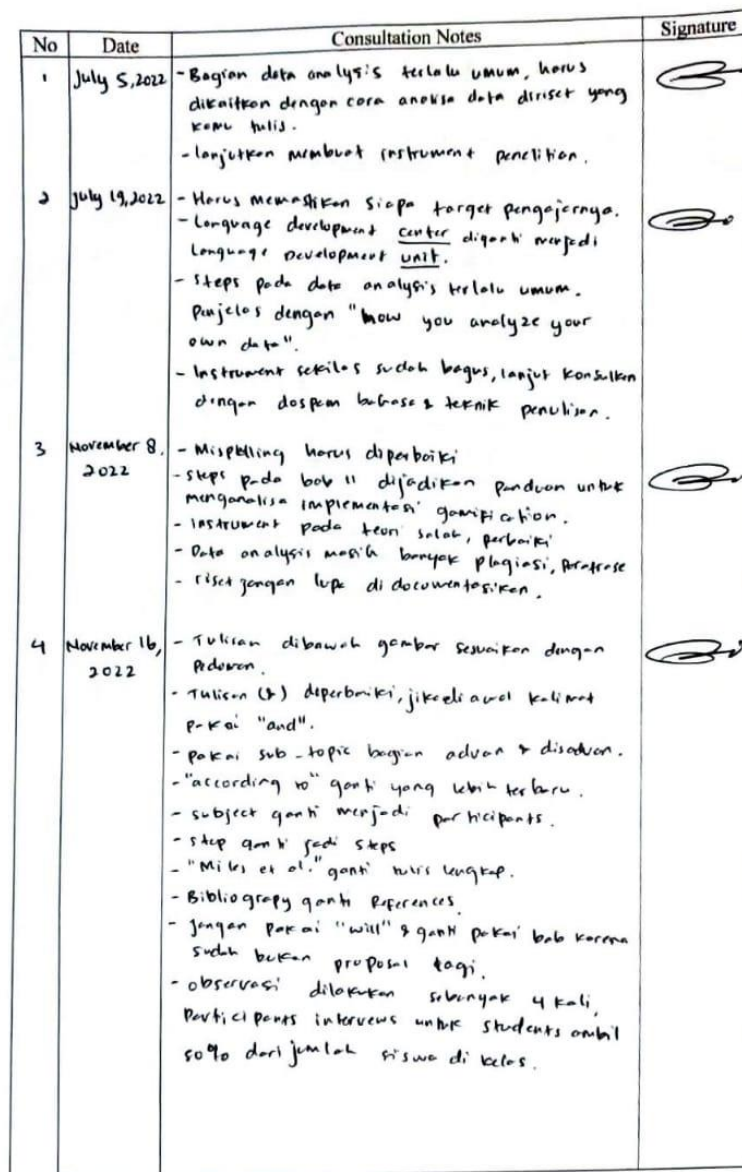 No Date Consultation Notes Signature
1 July 5, 2022 - Bagian data analysis terlalu umum, harus
dikaitkan dengan cara analisa data diriset yang
kamu tulis.
- lanjutkan membuat instrument penelitian.
2 July 19, 2022 - Harus memastikan siapa target pengajarnya.
- Language development center diganti menjadi
Language Development unit.
- Steps pada data analysis terlalu umum.
Penjelas dengan "how you analyze your
own data".
- Instrument sekilas sudah bagus, lanjut konsulkan
dengan dospem bahasa & teknik penulisan.
3 November 8, - Mispelling harus diperbaiki
2022 - Steps pada bab II dijadikan panduan untuk
menganalisa implementasi gamification.
- Instrument pada teori salah, perbaiki
- Data analysis masih banyak plagiasi, Parafrase
- riset jangan lupa di documentasikan.
4 November 16, - Tulisan dibawah gambar sesuaikan dengan
2022 Pedoman.
- Tulisan (&) diperbaiki, jika di awal kalimat
pakai "and".
- pakai sub-topic bagian advan & disadvan.
- "according to" ganti yang lebih terbaru.
- subject ganti menjadi participants.
- step ganti jadi steps
- "Miles et al." ganti tulis lengkap.
- Bibliograpy ganti References
- Jangan pakai "will" & ganti pakai bab karena
sudah bukan proposal lagi.
- observasi dilakukan sebanyak 4 kali,
Participants intervews untuk students ambil
50% dari jumlah siswa di kelas.